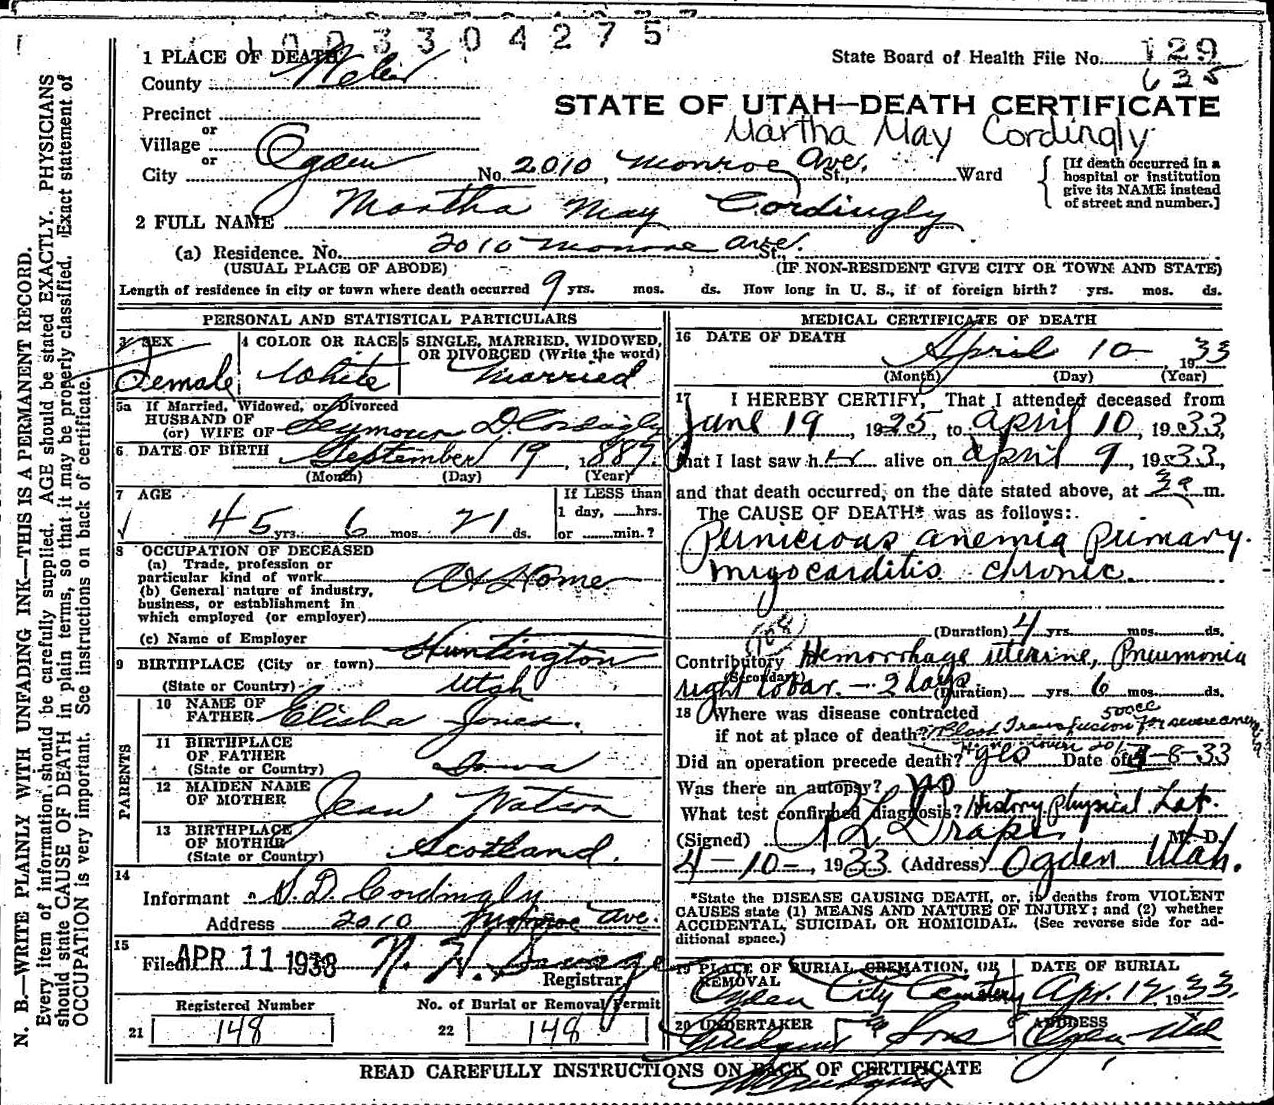 1003304275
1 PLACE OF DEATH
State Board of Health File No. 129
635
County Weber
STATE OF UTAH—DEATH CERTIFICATE
Precinct
or
Martha May Cordingly
Village
or
City Ogden No. 2010, Monroe Ave. St., Ward
[If death occurred in a hospital or institution give its NAME instead of street and number.]
2 FULL NAME Martha May Cordingly
(a) Residence. No. 2010 Monroe Ave. St.,
(USUAL PLACE OF ABODE) (IF NON-RESIDENT GIVE CITY OR TOWN AND STATE)
Length of residence in city or town where death occurred 9 yrs. mos. ds. How long in U. S., if of foreign birth? yrs. mos. ds.
PERSONAL AND STATISTICAL PARTICULARS
3 SEX Female
4 COLOR OR RACE White
5 SINGLE, MARRIED, WIDOWED, OR DIVORCED (Write the word) Married
5a If Married, Widowed, or Divorced
HUSBAND OF
(or) WIFE OF Seymour D. Cordingly
6 DATE OF BIRTH September 19, 1887
(Month) (Day) (Year)
7 AGE 45 yrs. 6 mos. 21 ds.
If LESS than
1 day, ....hrs.
or ......min.?
8 OCCUPATION OF DECEASED
(a) Trade, profession or
particular kind of work At Home
(b) General nature of industry,
business, or establishment in
which employed (or employer)
(c) Name of Employer
9 BIRTHPLACE (City or town) Huntington
(State or Country) Utah
PARENTS
10 NAME OF FATHER Elisha Jones.
11 BIRTHPLACE OF FATHER (State or Country) Iowa
12 MAIDEN NAME OF MOTHER Jean Watson
13 BIRTHPLACE OF MOTHER (State or Country) Scotland.
14 Informant S. D. Cordingly
Address 2010 Monroe Ave.
15 Filed APR 11 1933 Registrar.
Registered Number
21 148
No. of Burial or Removal Permit
22 148
MEDICAL CERTIFICATE OF DEATH
16 DATE OF DEATH April 10 1933
(Month) (Day) (Year)
17 I HEREBY CERTIFY, That I attended deceased from
June 19, 1925, to April 10, 1933,
that I last saw her alive on April 9, 1933,
and that death occurred, on the date stated above, at 3a m.
The CAUSE OF DEATH* was as follows:
Pernicious anemia Primary.
Myocarditis chronic.
(Duration) 4 yrs. mos. ds.
Contributory Hemorrhage uterine, Pneumonia
(Secondary)
right lobar. — 2 days (Duration) yrs. 6 mos. ds.
18 Where was disease contracted
500cc
if not at place of death? Blood Transfusion for severe anemia
Did an operation precede death? yes Date of 4-8-33
Was there an autopsy? no
What test confirmed diagnosis? History Physical Lab.
(Signed) Draper M. D.
4-10-, 1933 (Address) Ogden Utah.
*State the DISEASE CAUSING DEATH, or, in deaths from VIOLENT
CAUSES state (1) MEANS AND NATURE OF INJURY; and (2) whether
ACCIDENTAL, SUICIDAL OR HOMICIDAL. (See reverse side for ad-
ditional space.)
19 PLACE OF BURIAL, CREMATION, OR REMOVAL Ogden City Cemetery
DATE OF BURIAL Apr. 12 1933.
20 UNDERTAKER & Sons
ADDRESS Ogden Utah
READ CAREFULLY INSTRUCTIONS ON BACK OF CERTIFICATE
N. B.—WRITE PLAINLY WITH UNFADING INK—THIS IS A PERMANENT RECORD.
Every item of information should be carefully supplied. AGE should be stated EXACTLY. PHYSICIANS
should state CAUSE OF DEATH in plain terms, so that it may be properly classified. Exact statement of
OCCUPATION is very important. See instructions on back of certificate.